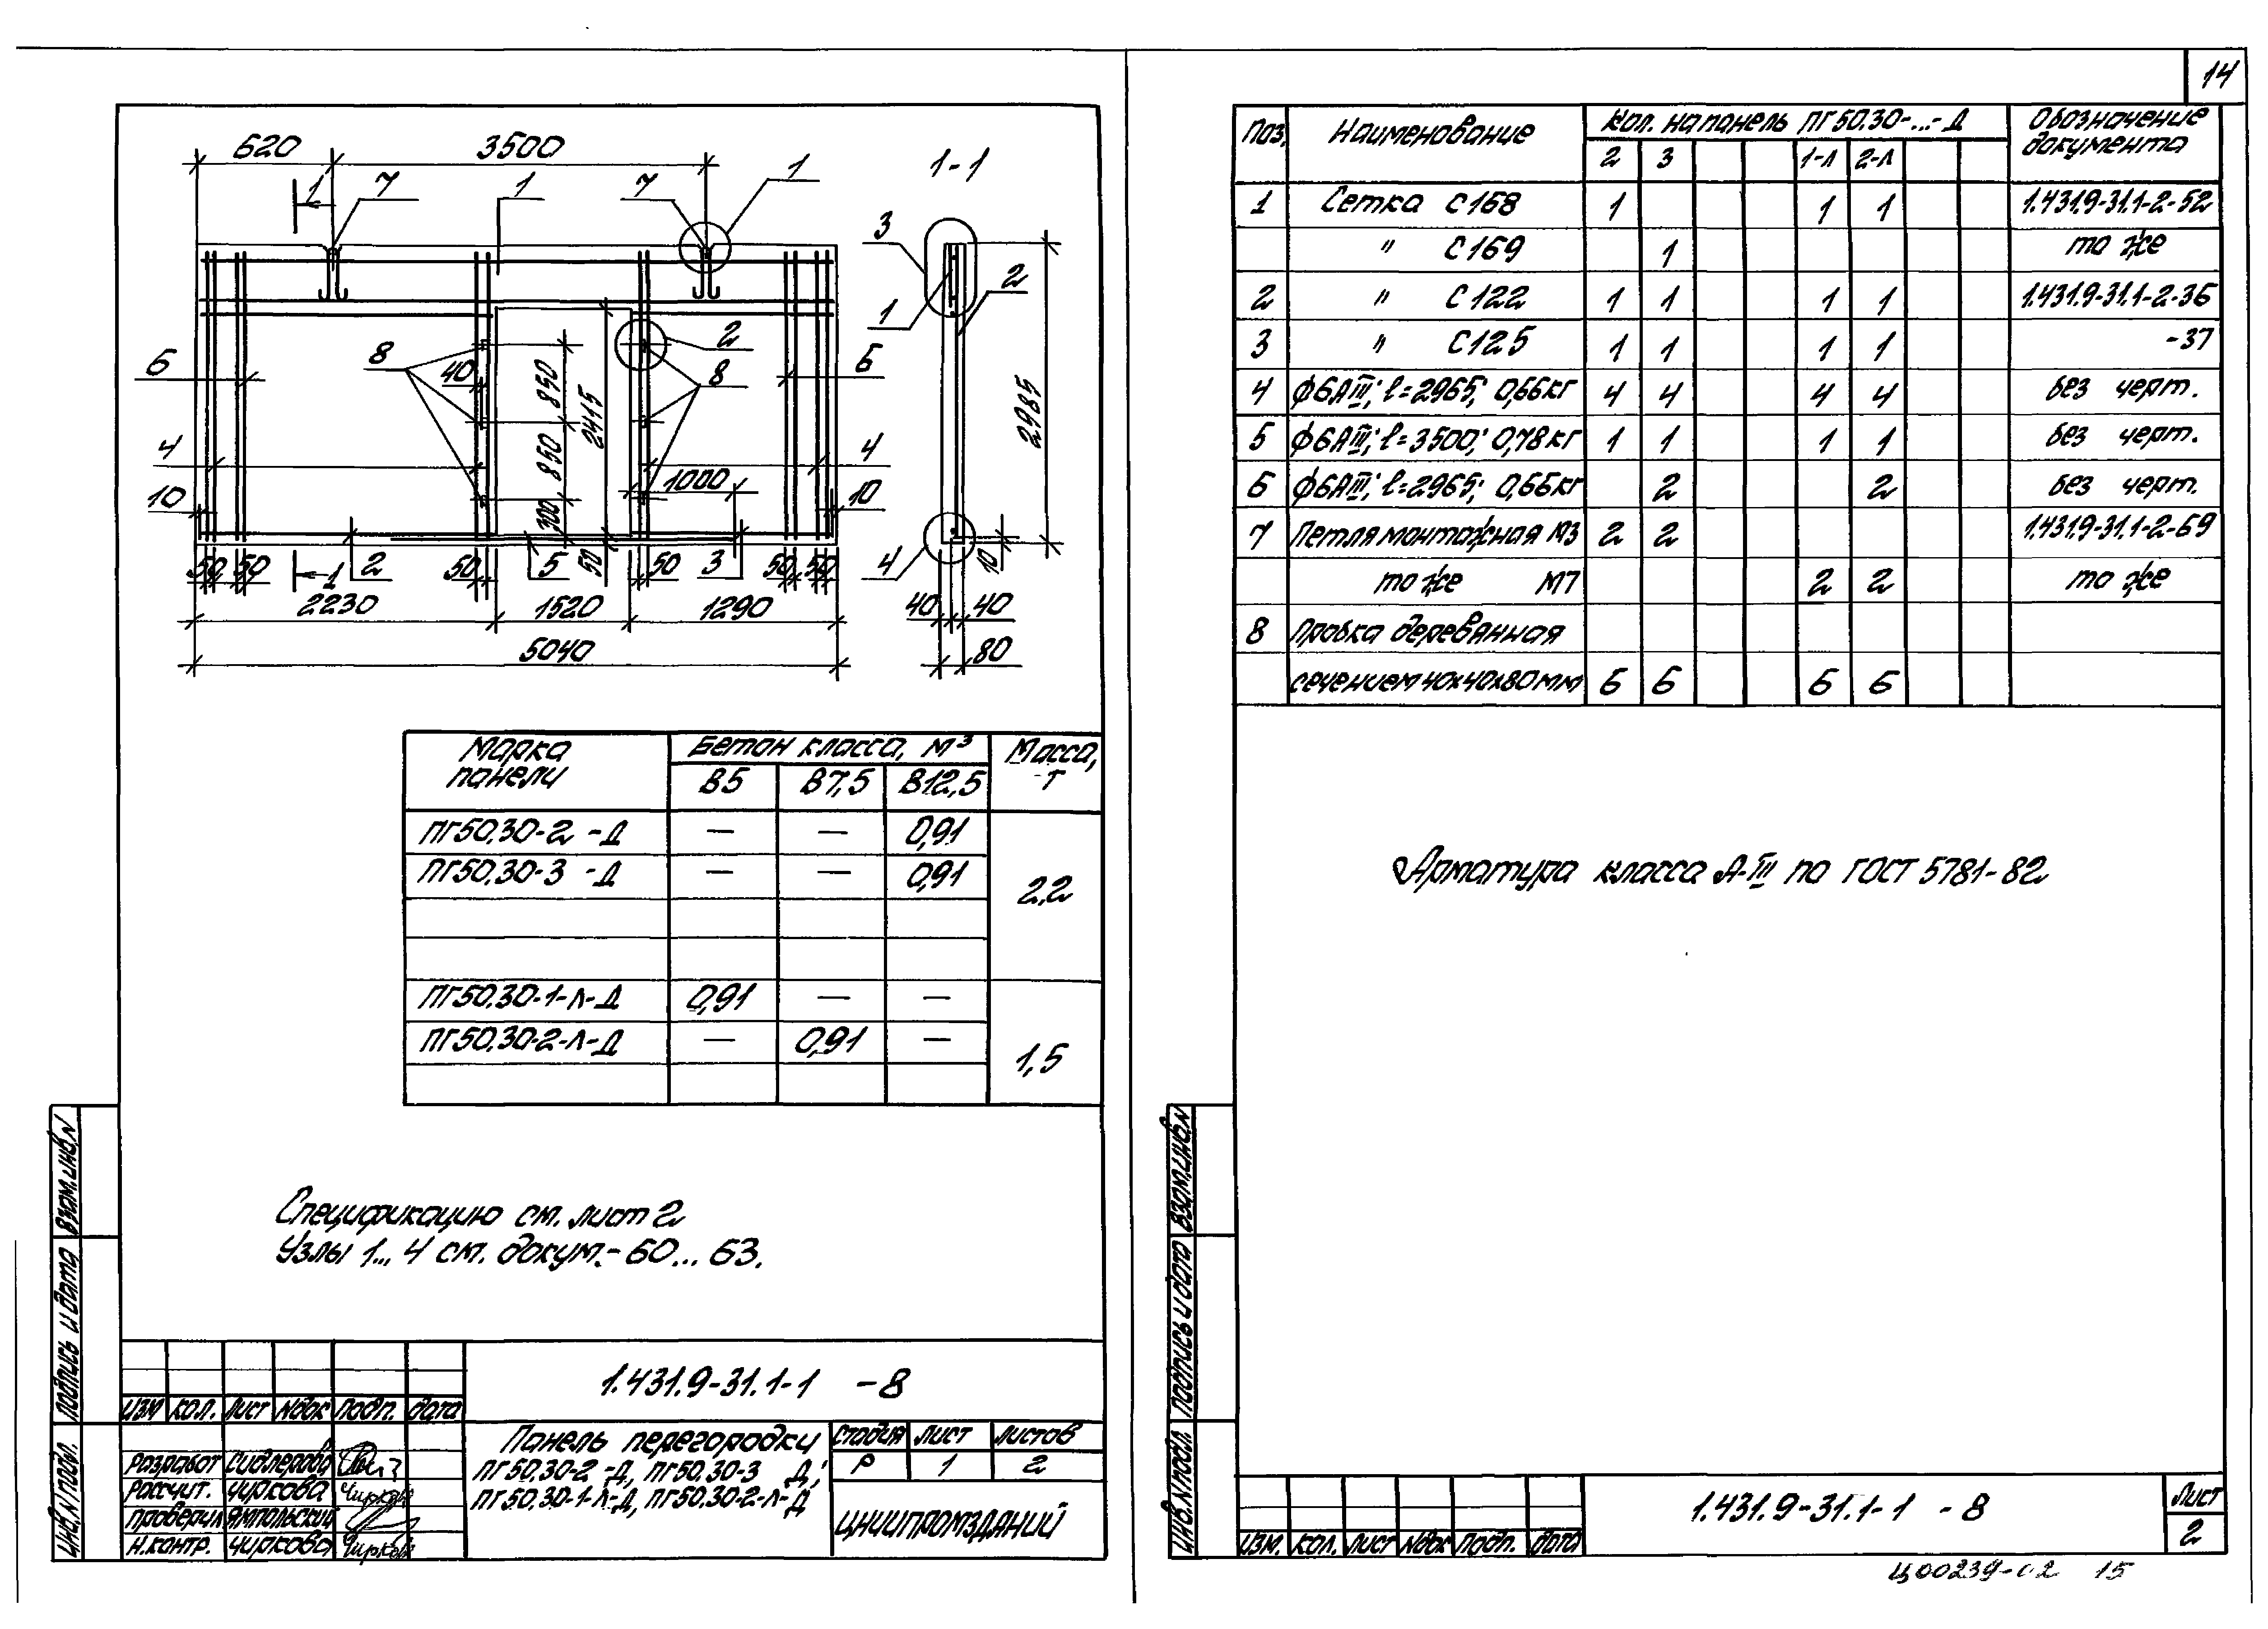 14
620 3500
1 7 1 7 1 1-1
3 2
1
8 2
6 40 850 2415 8 6 2985
4 850 1000 4
10 300 10
50 50 1 2 50 5 50 50 3 50 50 4 10
2230 1520 1290 40 40
5040 80
Марка панели Бетон класса, м³ Масса, т
В5 В7,5 В12,5
ПГ50.30-2 -Д — — 0,91
ПГ50.30-3 -Д — — 0,91
2,2
ПГ50.30-1-Л-Д 0,91 — —
ПГ50.30-2-Л-Д — 0,91 —
1,5
Спецификацию см. лист 2
Узлы 1... 4 см. докум.- 60... 63.
1.431.9-31.1-1 -8
Изм Кол. Лист Nдок Подп. Дата
Панель перегородки
ПГ50.30-2 -Д, ПГ50.30-3 Д;
ПГ50.30-1-Л-Д, ПГ50.30-2-Л-Д
Стадия Лист Листов
Р 1 2
ЦНИИПРОМЗДАНИЙ
Разработ Сидлерова
Рассчит. Чиркова
Проверил Ямпольский
Н.контр. Чиркова
Инв.N подл. Подпись и дата Взам.инв.N
Поз. Наименование Кол. на панель ПГ50.30-...-Д Обозначение документа
2 3 1-Л 2-Л
1 Сетка С168 1 1 1 1.431.9-31.1-2-52
" С169 1 то же
2 " С122 1 1 1 1 1.431.9-31.1-2-36
3 " С125 1 1 1 1 -37
4 ф6АIII; l=2965; 0,66кг 4 4 4 4 без черт.
5 ф6АIII; l=3500; 0,78кг 1 1 1 1 без черт.
6 ф6АIII; l=2965; 0,66кг 2 2 без черт.
7 Петля монтажная М3 2 2 1.431.9-31.1-2-69
то же М7 2 2 то же
8 Пробка деревянная
сечением 40х40х80мм 6 6 6 6
Арматура класса А-III по ГОСТ 5781-82
Инв.N подл. Подпись и дата Взам.инв.N
Изм. Кол. Лист Nдок Подп. Дата
1.431.9-31.1-1 -8
Лист
2
Ц00239-02 15